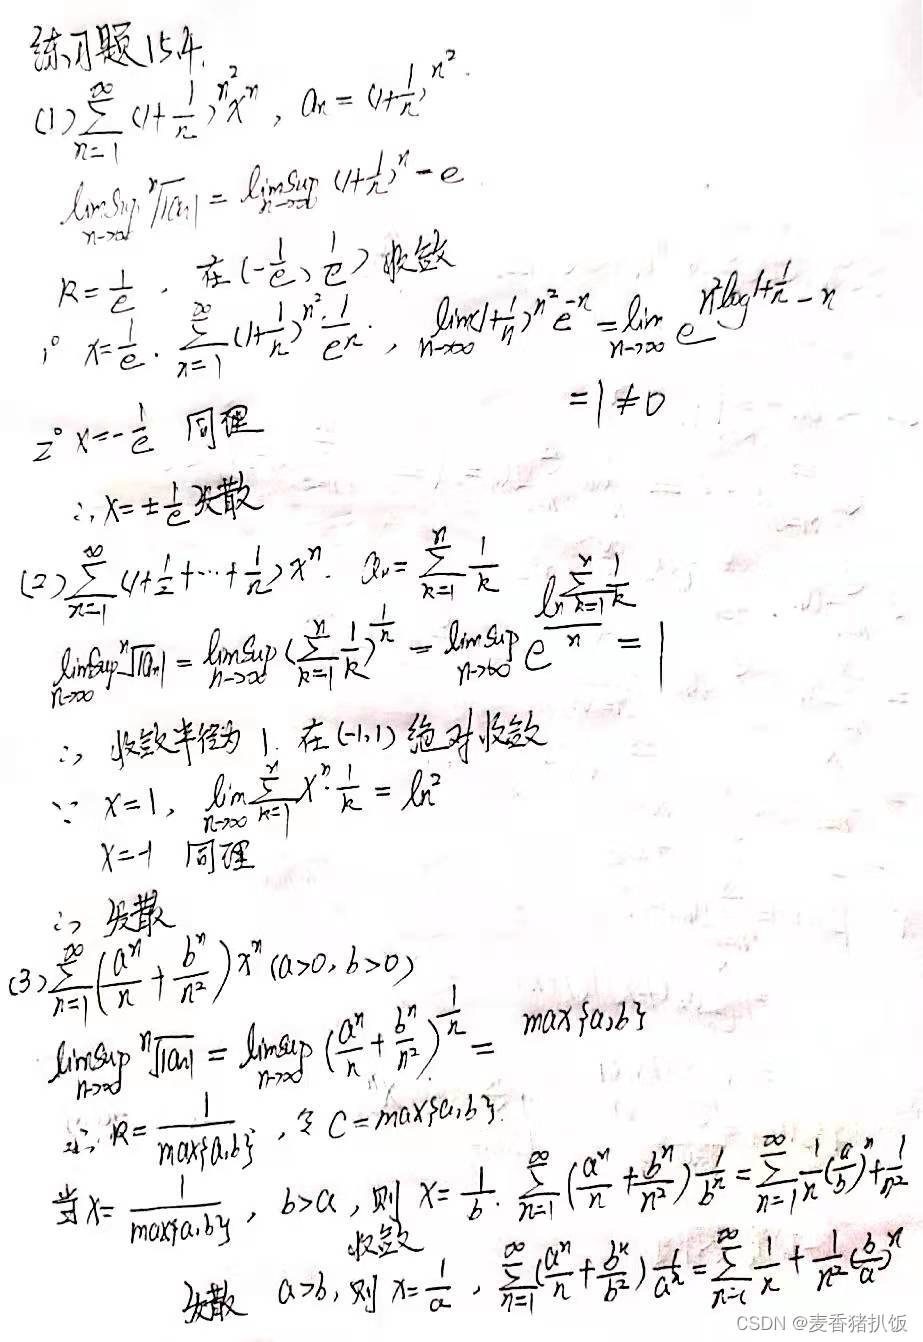 练习题15.4.
(1) \sum_{n=1}^{\infty} (1+\frac{1}{n})^{n^2} x^n , a_n = (1+\frac{1}{n})^{n^2}.
\limsup_{n→∞} \sqrt[n]{|a_n|} = \limsup_{n→∞} (1+\frac{1}{n})^n - e
R = \frac{1}{e} . 在 (-\frac{1}{e}, \frac{1}{e}) 收敛
1° x = \frac{1}{e} . \sum_{n=1}^{\infty} (1+\frac{1}{n})^{n^2} \cdot \frac{1}{e^n} , \lim_{n→∞} (1+\frac{1}{n})^{n^2} e^{-n} = \lim_{n→∞} e^{n^2 log 1+\frac{1}{n} - n}
= 1 ≠ 0
2° x = -\frac{1}{e} 同理
∴ x = ±\frac{1}{e} 发散
(2) \sum_{n=1}^{\infty} (1+\frac{1}{2}+⋯+\frac{1}{n}) x^n . a_n = \sum_{k=1}^{n} \frac{1}{k}
\limsup_{n→∞} \sqrt[n]{|a_n|} = \limsup_{n→∞} (\sum_{k=1}^{n} \frac{1}{k})^{\frac{1}{n}} = \limsup_{n→∞} e^{\frac{ln \sum_{k=1}^{n} \frac{1}{k}}{n}} = 1
∴ 收敛半径为 1. 在 (-1,1) 绝对收敛
∵ x=1, \lim_{n→∞} \sum_{k=1}^{n} x^n \cdot \frac{1}{k} = ln^2
x=-1 同理
∴ 发散
(3) \sum_{n=1}^{\infty} (\frac{a^n}{n} + \frac{b^n}{n^2}) x^n (a>0, b>0)
\limsup_{n→∞} \sqrt[n]{|a_n|} = \limsup_{n→∞} (\frac{a^n}{n} + \frac{b^n}{n^2})^{\frac{1}{n}} = max{a,b}
∴ R = \frac{1}{max{a,b}} , 令 C = max{a,b}.
当 x = \frac{1}{max{a,b}} , b>a , 则 x = \frac{1}{b} . \sum_{n=1}^{\infty} (\frac{a^n}{n} + \frac{b^n}{n^2}) \frac{1}{b^n} = \sum_{n=1}^{\infty} \frac{1}{n} (\frac{a}{b})^n + \frac{1}{n^2}
收敛
发散 a>b, 则 x = \frac{1}{a} , \sum_{n=1}^{\infty} (\frac{a^n}{n} + \frac{b^n}{b^2}) \frac{1}{a^n} = \sum_{n=1}^{\infty} \frac{1}{n} + \frac{1}{n^2} (\frac{b}{a})^n
CSDN @麦香猪扒饭